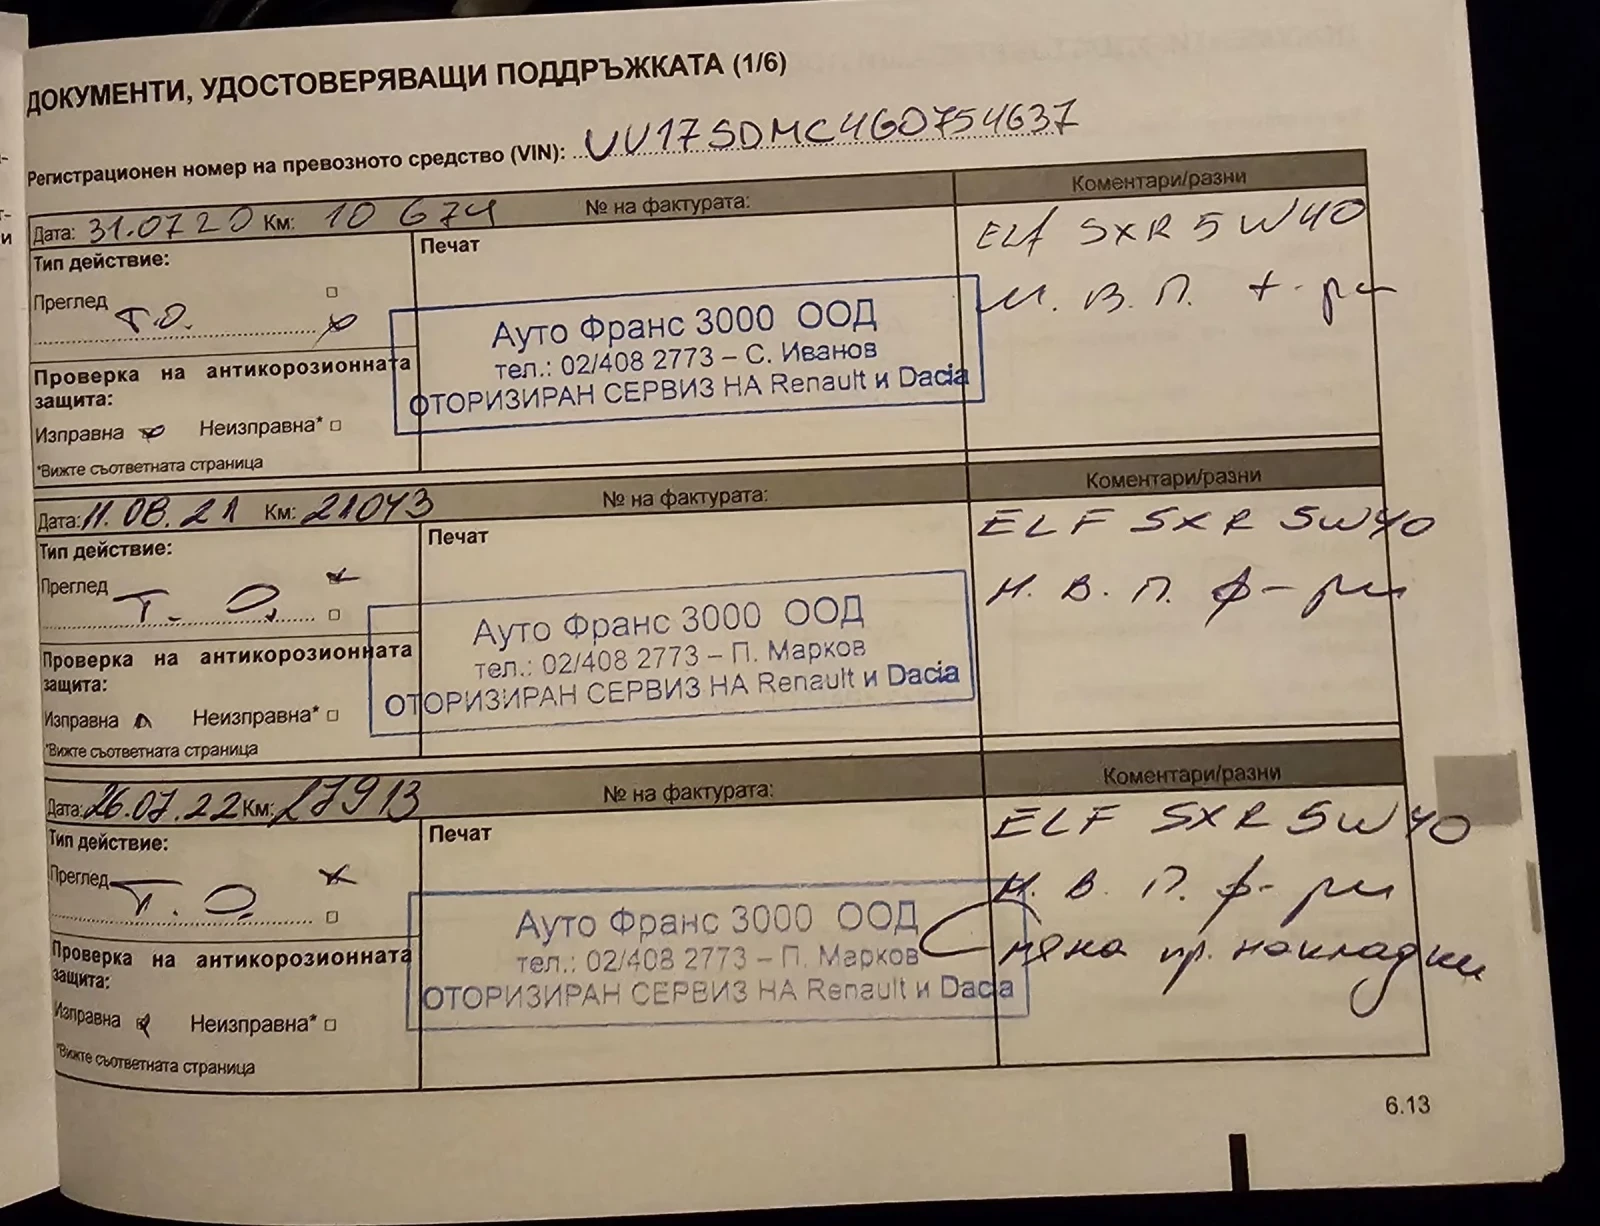 ДОКУМЕНТИ, УДОСТОВЕРЯВАЩИ ПОДДРЪЖКАТА (1/6)
Регистрационен номер на превозното средство (VIN): UU17SDMC460754637
Коментари/разни
Дата: 31.07 20 Км: 10 674 № на фактурата:
ELf SXR 5W40
Тип действие:
Печат
М. В. П. ф-ри
Преглед
Т.О.
Ауто Франс 3000 ООД
тел.: 02/408 2773 – С. Иванов
ОТОРИЗИРАН СЕРВИЗ НА Renault и Dacia
Проверка на антикорозионната
защита:
Изправна Неизправна*
*Вижте съответната страница
Коментари/разни
Дата: 11.08.21 Км: 21043 № на фактурата:
ELF SXR 5W40
Тип действие:
Печат
М. В. П. ф-ри
Преглед
Т. О.
Ауто Франс 3000 ООД
тел.: 02/408 2773 – П. Марков
ОТОРИЗИРАН СЕРВИЗ НА Renault и Dacia
Проверка на антикорозионната
защита:
Изправна Неизправна*
*Вижте съответната страница
Коментари/разни
Дата: 26.07.22 Км: 27913 № на фактурата:
ELF SXR 5W40
Тип действие:
Печат
М. В. П. ф-ри
Преглед
Т. О.
Смяна пр. накладки
Ауто Франс 3000 ООД
тел.: 02/408 2773 – П. Марков
ОТОРИЗИРАН СЕРВИЗ НА Renault и Dacia
Проверка на антикорозионната
защита:
Изправна Неизправна*
*Вижте съответната страница
6.13